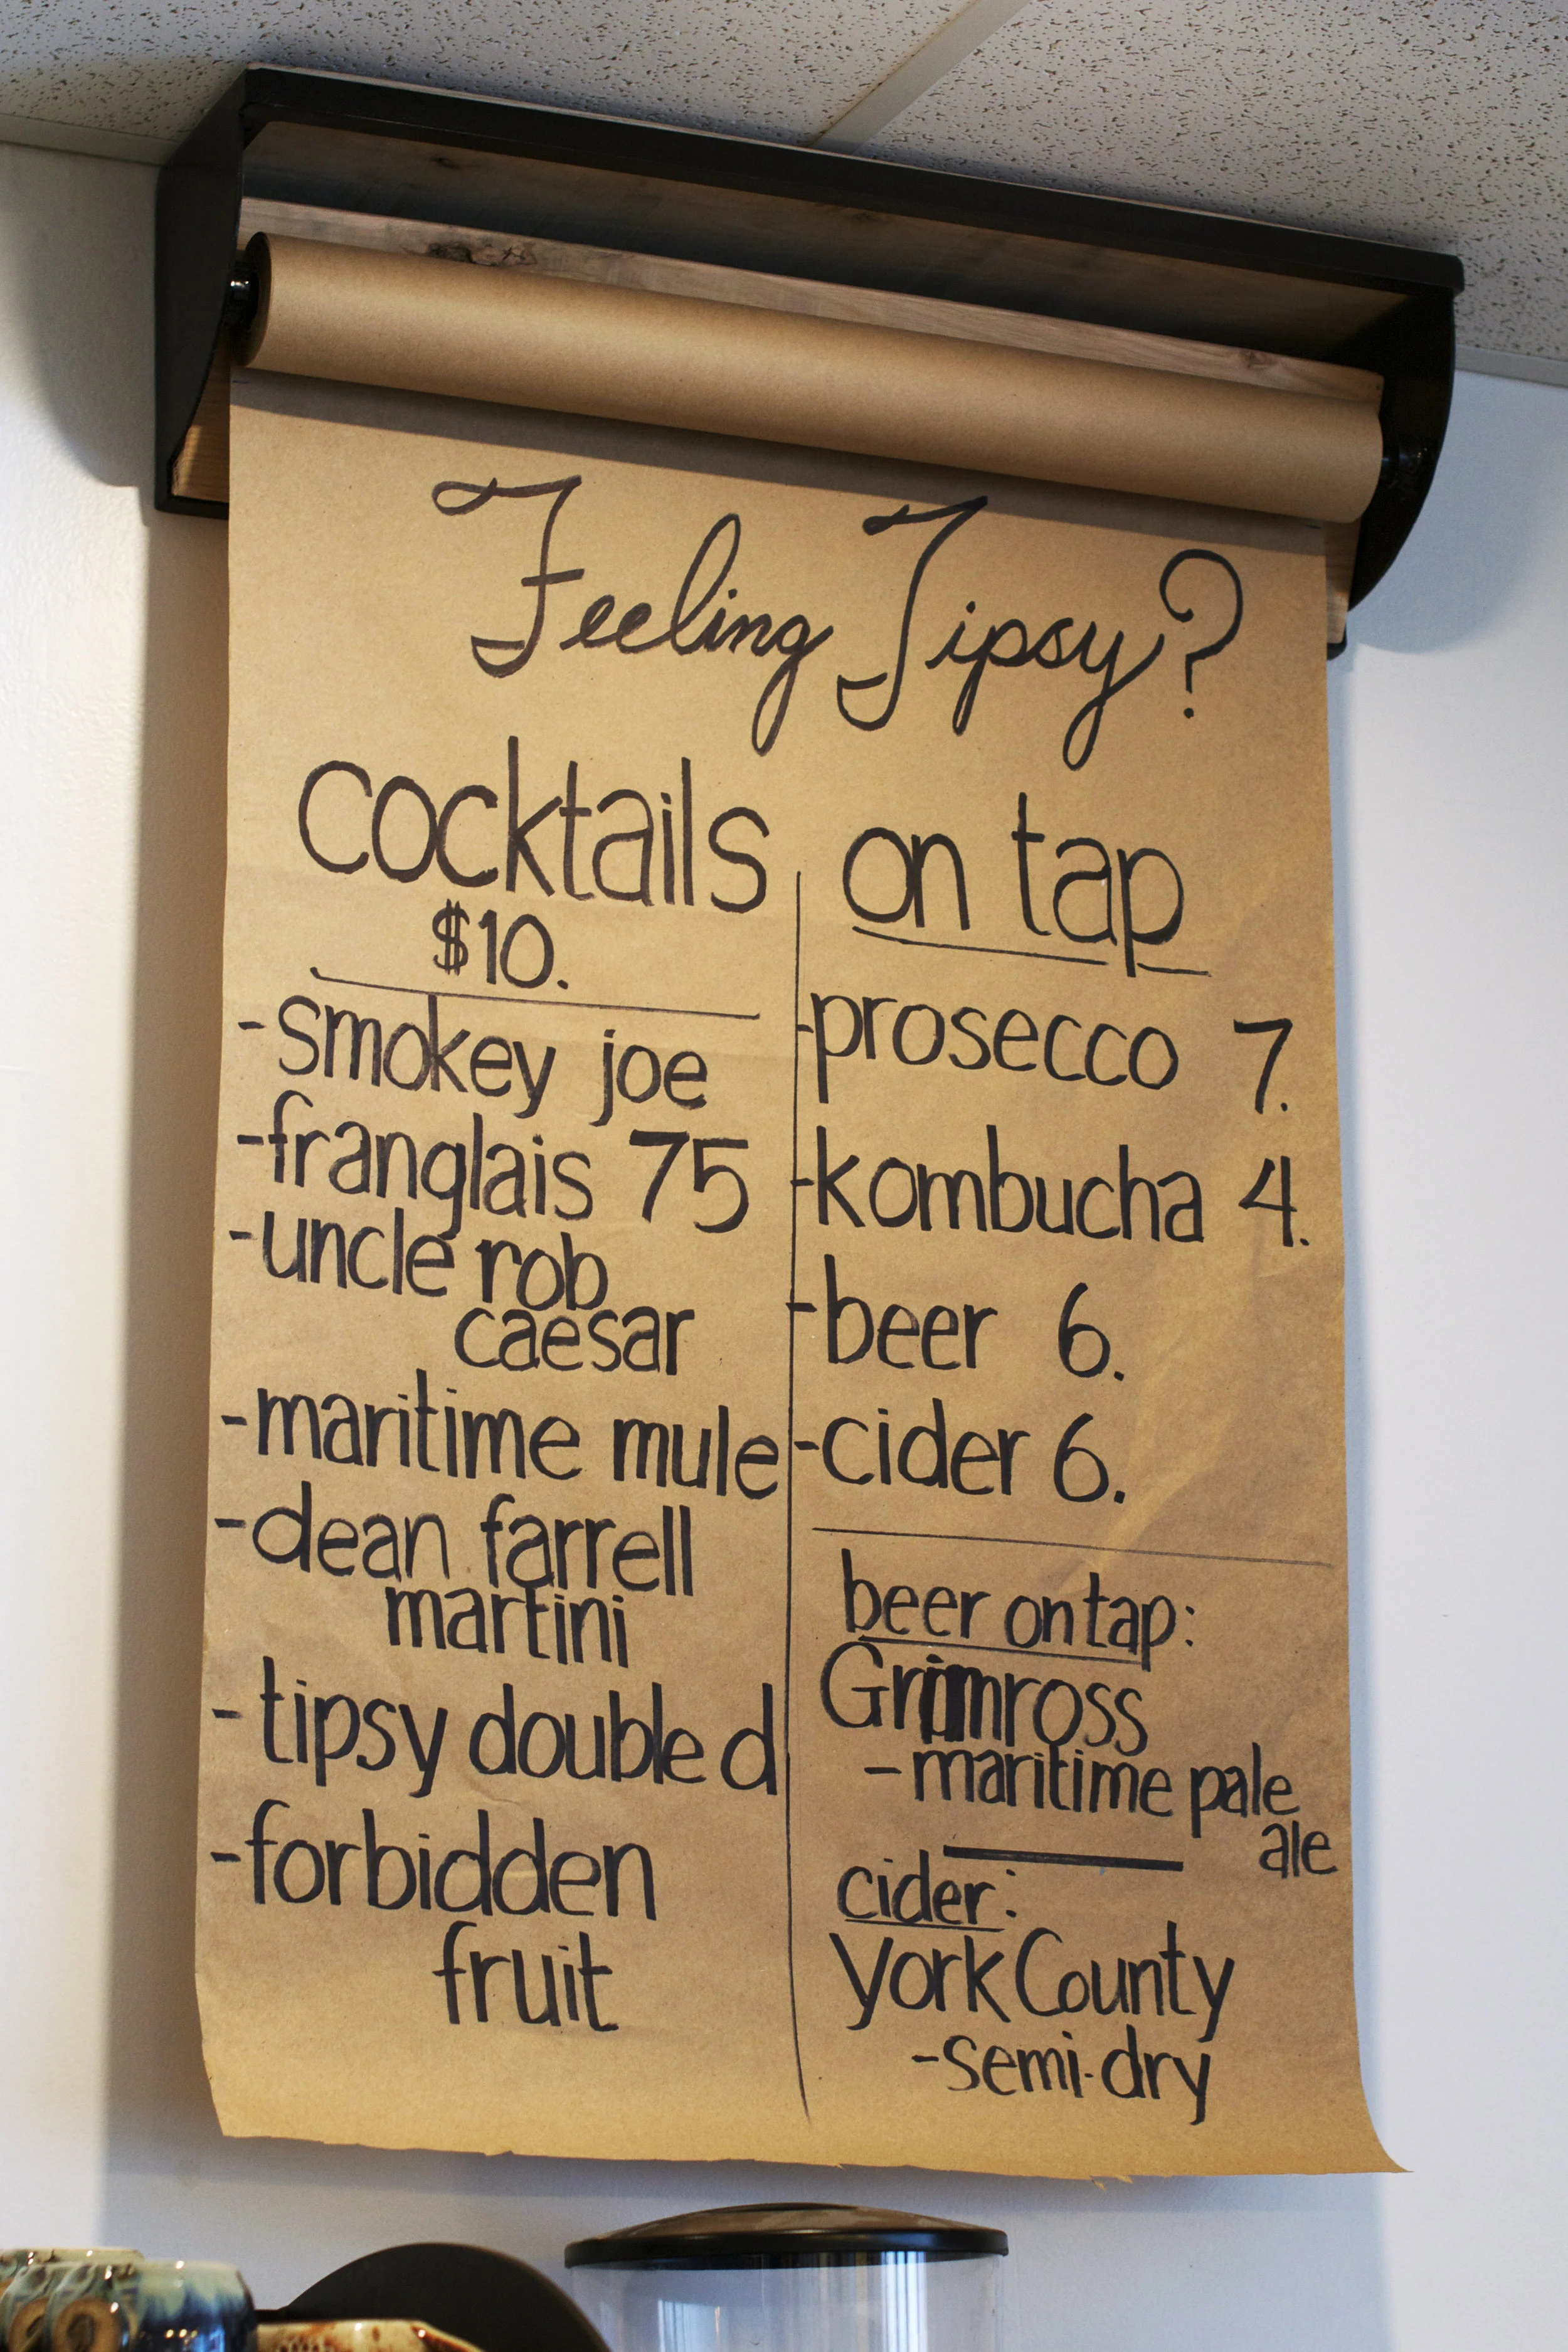 Feeling Tipsy?
cocktails
$10.
-smokey joe
-franglais 75
-uncle rob
caesar
-maritime mule
-dean farrell
martini
-tipsy double d
-forbidden
fruit
on tap
-prosecco 7.
-kombucha 4.
-beer 6.
-cider 6.
beer on tap:
Grimross
-maritime pale
ale
cider:
York County
-semi-dry